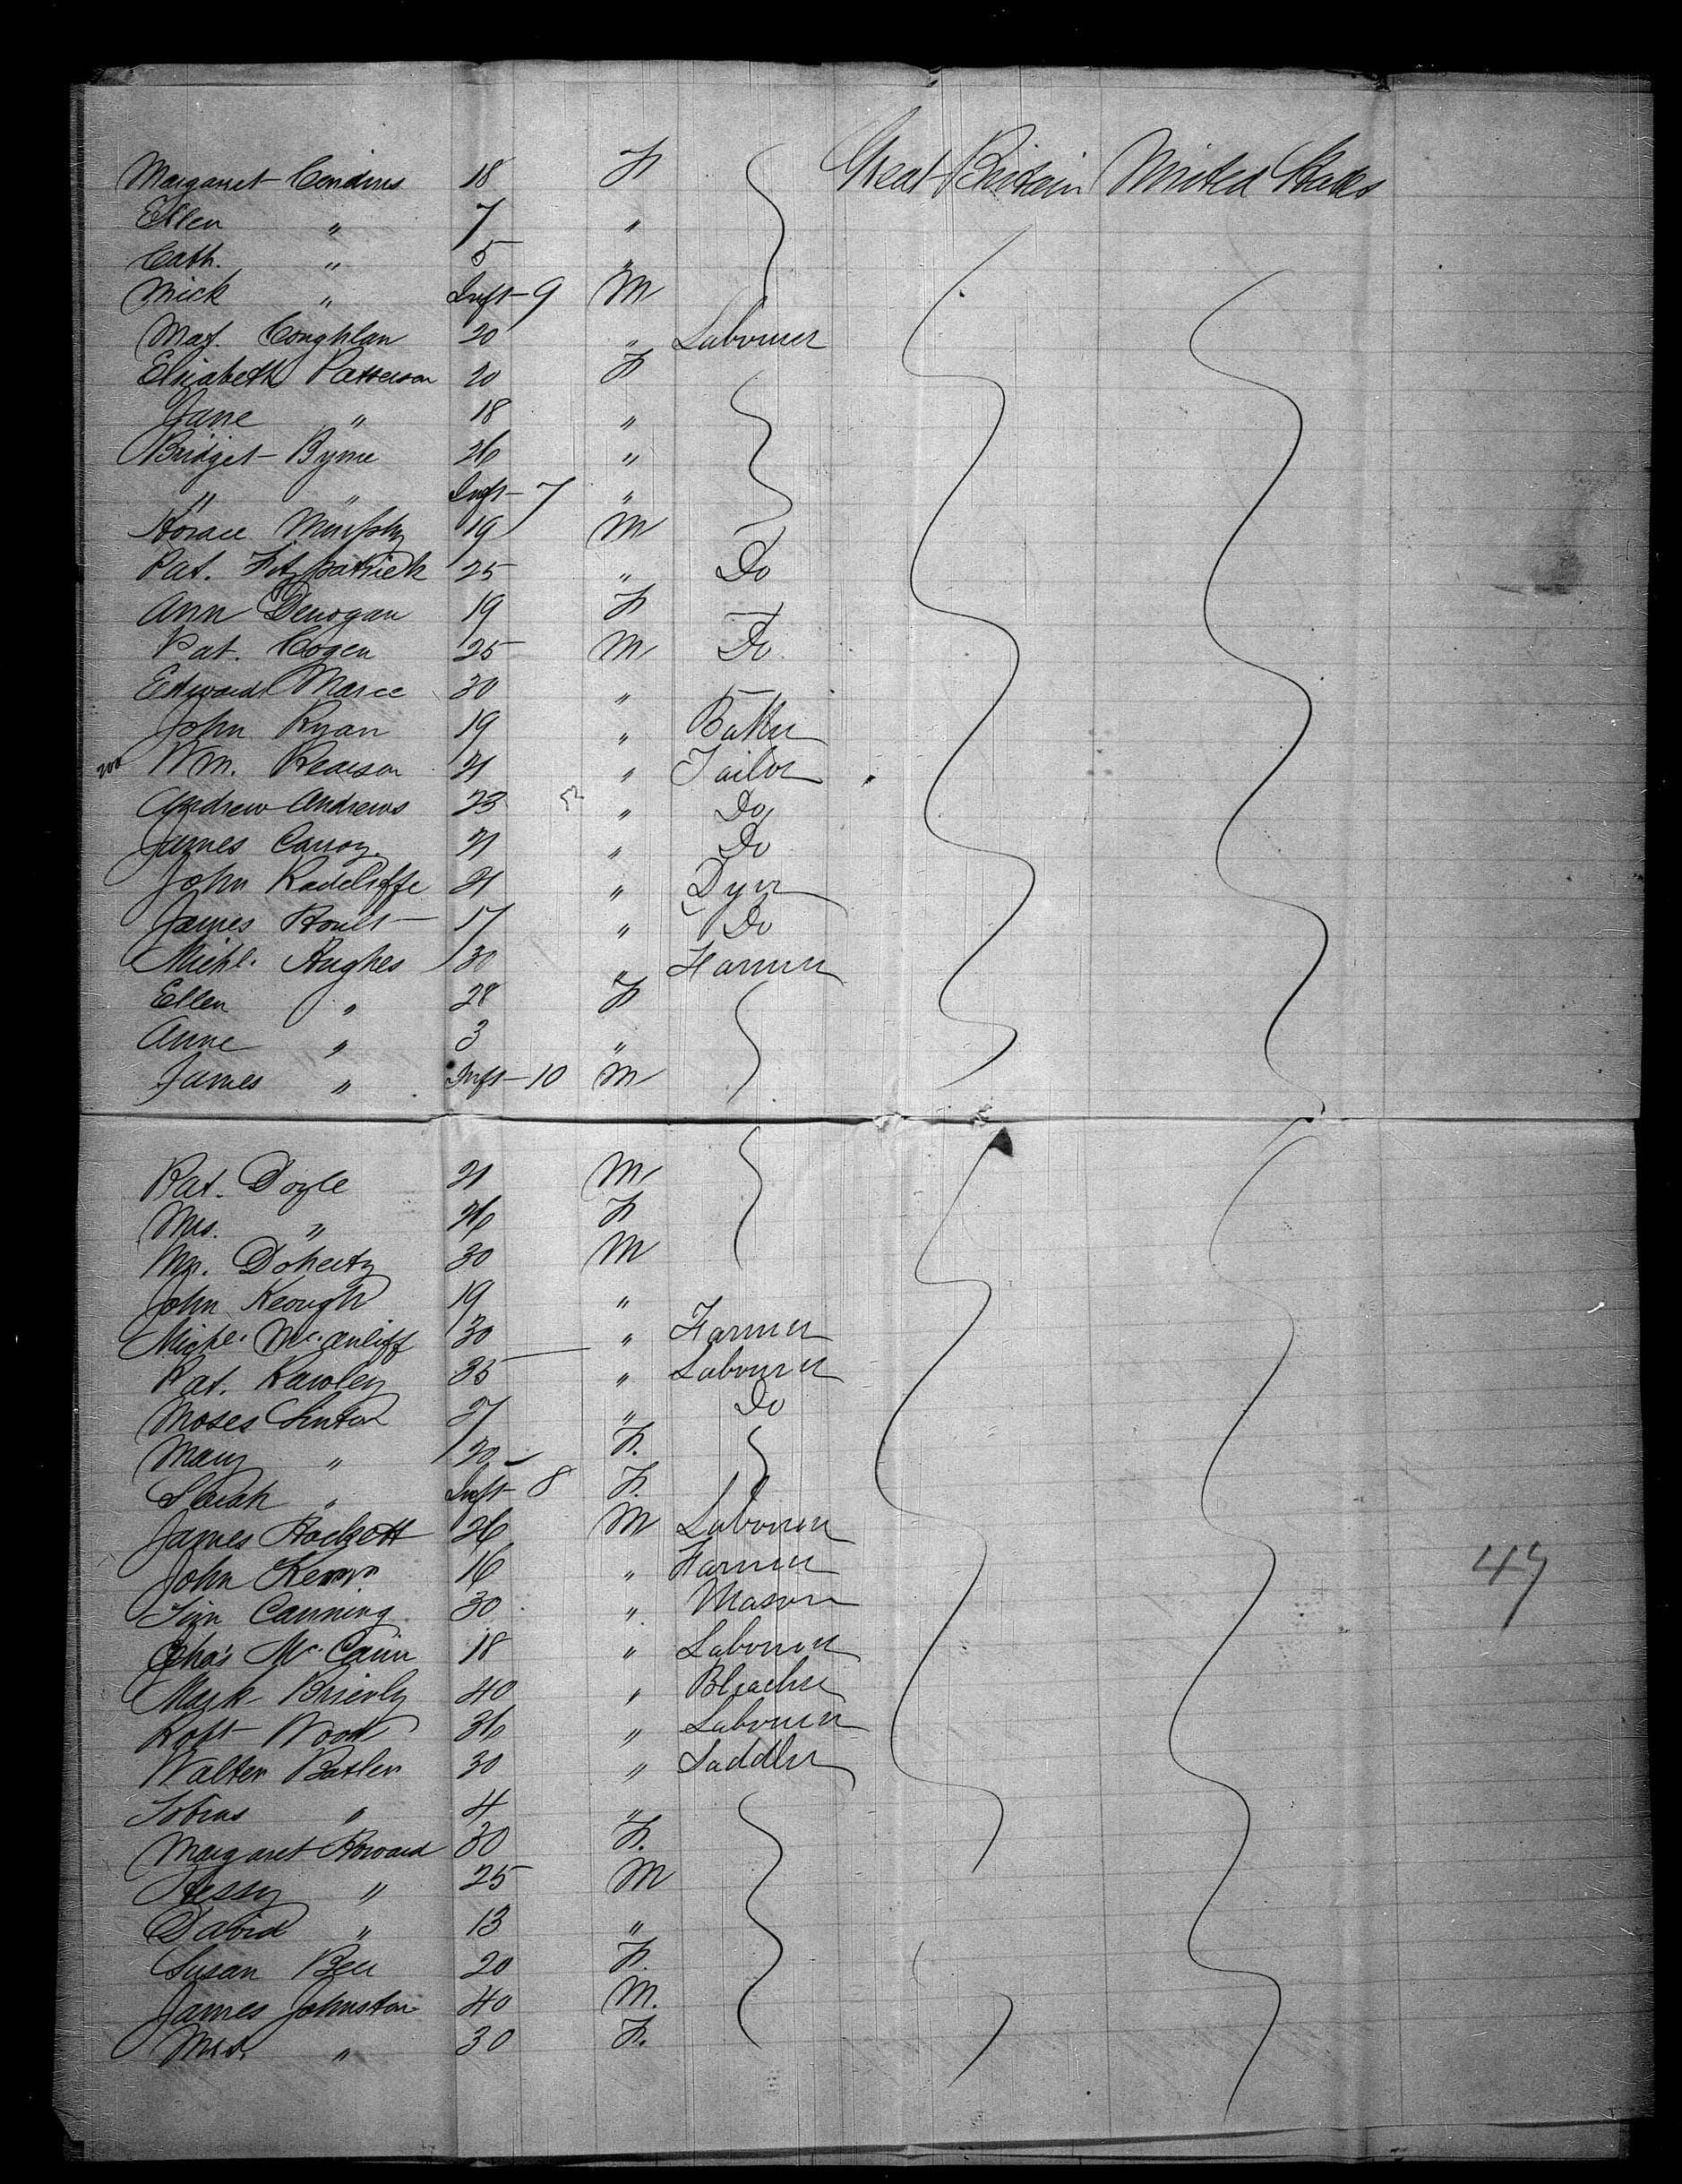 Margaret 18 F Great Britain United States
Ellen " 7 "
Cath. " 5 "
Mick " Inft 9 M
Mat. Coughlan 20 " Labourer
Elizabeth Patterson 20 F
Jane " 18 "
Bridget Byrne 26 "
" " Inft 7 "
Horace Murphy 19 M
Pat. Fitzpatrick 25 " Do
Ann 19 F —
Pat. Cogen 25 M Do
Edward Maree 30 " —
John Ryan 19 " Baker
200 Wm. Pearson 21 " Tailor
Andrew Andrews 23 " Do
James 21 " Do
John Radcliffe 21 " Dyer
James 17 " Do
Michl. Hughes 30 " Farmer
Ellen " 28 F
Anne " 3 "
James " Inft 10 M
Pat. Doyle 21 M
Mrs. " 26 F
Doherty 30 M
John Keough 19 "
Michl. McAuliff 30 " Farmer
Pat. Rawley 35 " Labourer
Moses 27 " Do
Mary " 20 F.
Sarah " Inft 8 F.
James Hackett 26 M Labourer
John 16 " Farmer
Tim Canning 30 " Mason
Chas Mc 18 " Labourer
Mark Brierly 40 " Bleacher
Robt Wood 36 " Labourer
Walter Butler 30 " Saddler
Tobias " 4 "
Margaret Howard 30 F.
Hessy " 25 M
David " 13 "
Susan Bell 20 F.
James Johnston 40 M.
Mrs. " 30 F.
47